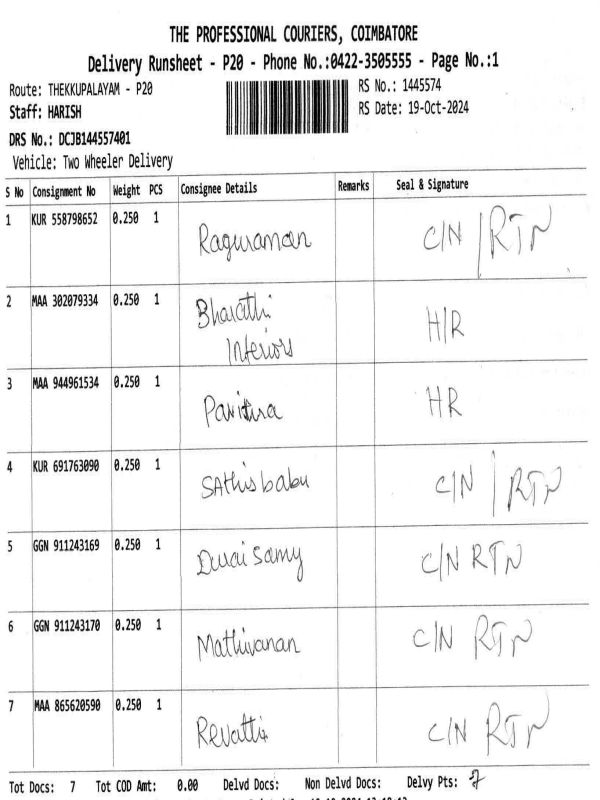 THE PROFESSIONAL COURIERS, COIMBATORE
Delivery Runsheet - P20 - Phone No.:0422-3505555 - Page No.:1
Route: THEKKUPALAYAM - P20 RS No.: 1445574
Staff: HARISH RS Date: 19-Oct-2024
DRS No.: DCJB144557401
Vehicle: Two Wheeler Delivery
S No Consignment No Weight PCS Consignee Details Remarks Seal & Signature
1 KUR 558798652 0.250 1 Raguraman C/N / RTN
2 MAA 302079334 0.250 1 Bharathi H/R
Interiors
3 MAA 944961534 0.250 1 Pavithra HR
4 KUR 691763090 0.250 1 SAthisbabu C/N | RTN
5 GGN 911243169 0.250 1 Duraisamy C/N RTN
6 GGN 911243170 0.250 1 Mathivanan C/N RTN
7 MAA 865620590 0.250 1 Revathi C/N RTN
Tot Docs: 7 Tot COD Amt: 0.00 Delvd Docs: Non Delvd Docs: Delvy Pts: 7